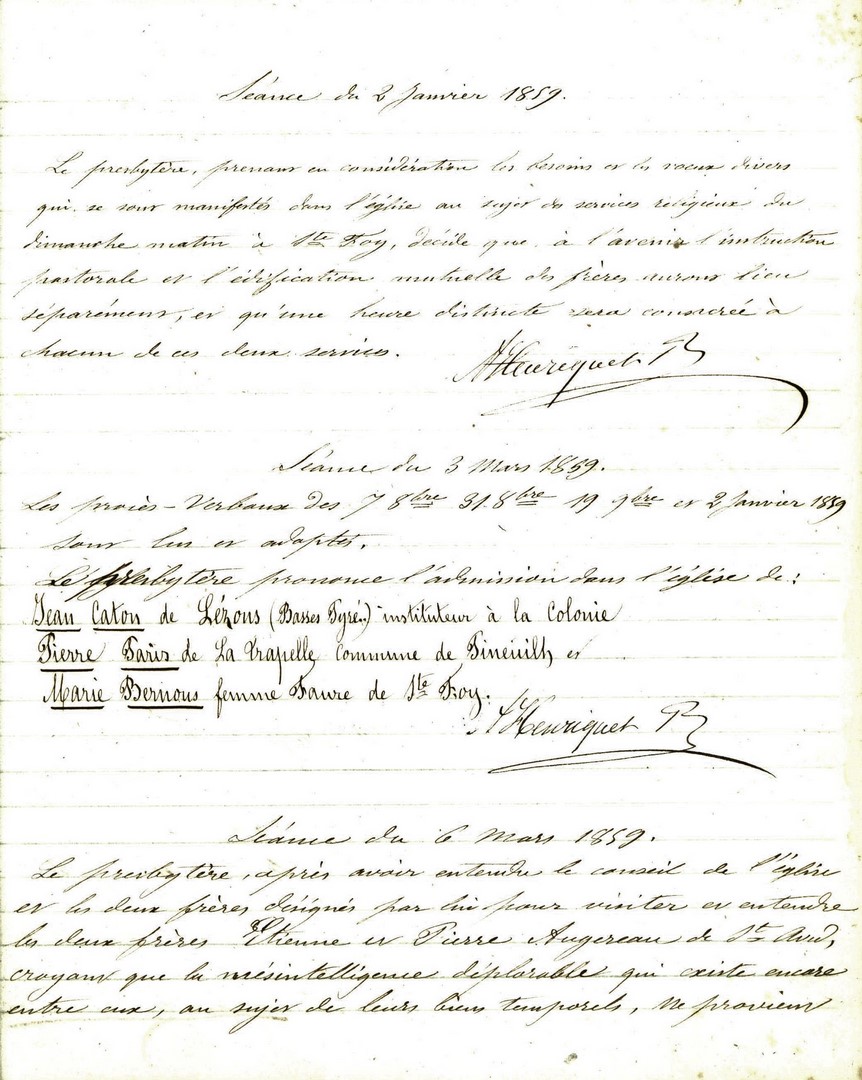 Séance du 2 Janvier 1859.
Le presbytère, prenant en considération les besoins et les vœux divers
qui se sont manifestés dans l'église au sujet des services religieux du
dimanche matin à Ste Foy, décide que à l'avenir l'instruction
pastorale et l'édification mutuelle des frères auront lieu
séparément, et qu'une heure distincte sera consacrée à
chacun de ces deux services.
Henriquet P
Séance du 3 Mars 1859.
Les procès-Verbaux des 7 8bre 31 8bre 19 9bre et 2 Janvier 1859
sont lus et adoptés.
Le presbytère prononce l'admission dans l'église de :
Jean Caton de Lézous (Basses Pyré..) instituteur à la Colonie
Pierre Paris de La Trapelle commune de Pineuilh et
Marie Bernous femme Faure de Ste Foy.
Henriquet P
Séance du 6 Mars 1859.
Le presbytère, après avoir entendre le conseil de l'église
et les deux frères désignés par lui pour visiter et entendre
les deux frères Etienne et Pierre Augereau de St Avid,
croyant que la mésintelligence déplorable qui existe encore
entre eux, au sujet de leurs biens temporels, ne provient